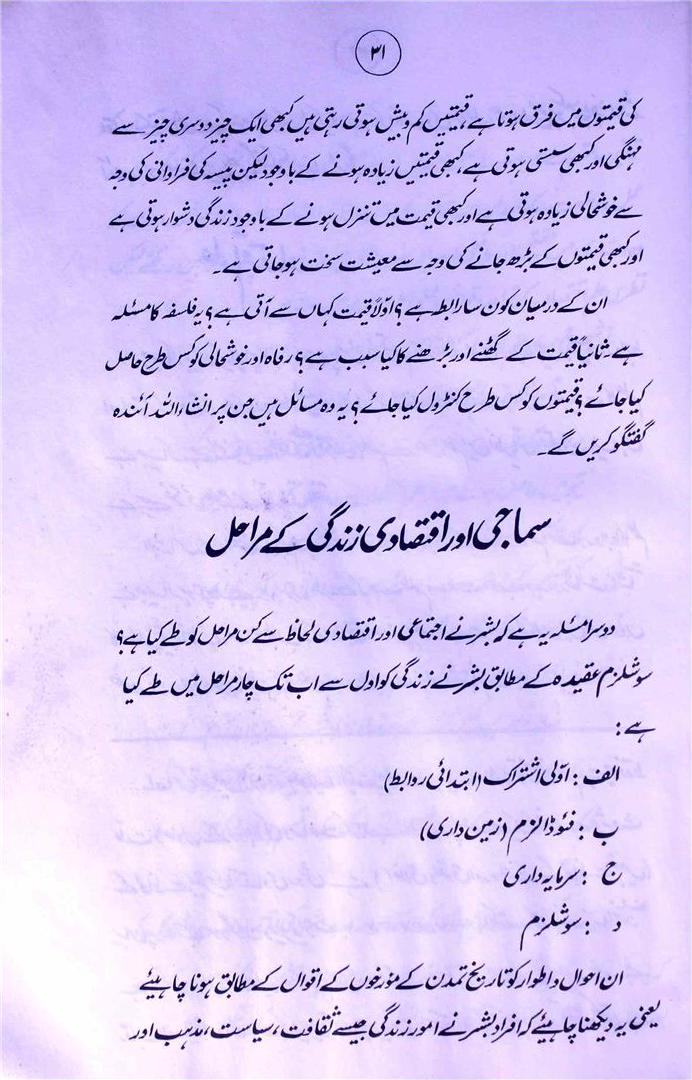 ۳۱
کی قیمتوں میں فرق ہوتا ہے، قیمتیں کم و بیش ہوتی رہتی ہیں کبھی ایک چیز دوسری چیز سے
مہنگی اور کبھی سستی ہوتی ہے، کبھی قیمتیں زیادہ ہونے کے باوجود لیکن پیسہ کی فراوانی کی وجہ
سے خوشحالی زیادہ ہوتی ہے اور کبھی قیمت میں تنزل ہونے کے باوجود زندگی دشوار ہوتی ہے
اور کبھی قیمتوں کے بڑھ جانے کی وجہ سے معیشت سخت ہو جاتی ہے۔
ان کے درمیان کون سا رابطہ ہے؟ اولاً قیمت کہاں سے آتی ہے؟ یہ فلسفہ کا مسئلہ
ہے۔ ثانیاً قیمت کے گھٹنے اور بڑھنے کا کیا سبب ہے؟ رفاہ اور خوشحالی کو کس طرح حاصل
کیا جائے؟ قیمتوں کو کس طرح کنٹرول کیا جائے؟ یہ وہ مسائل ہیں جن پر انشاء اللہ آئندہ
گفتگو کریں گے۔
سماجی اور اقتصادی زندگی کے مراحل
دوسرا مسئلہ یہ ہے کہ بشر نے اجتماعی اور اقتصادی لحاظ سے کن مراحل کو طے کیا ہے؟
سوشلزم عقیدہ کے مطابق بشر نے زندگی کو اول سے اب تک چار مراحل میں طے کیا
ہے :
الف : اوّلی اشتراک (ابتدائی روابط)
ب : فئوڈالزم (زمین داری)
ج : سرمایہ داری
د : سوشلزم
ان احوال و اطوار کو تاریخ تمدن کے مؤرخوں کے اقوال کے مطابق ہونا چاہیئے
یعنی یہ دیکھنا چاہیئے کہ افراد بشر نے امور زندگی جیسے ثقافت، سیاست، مذہب اور